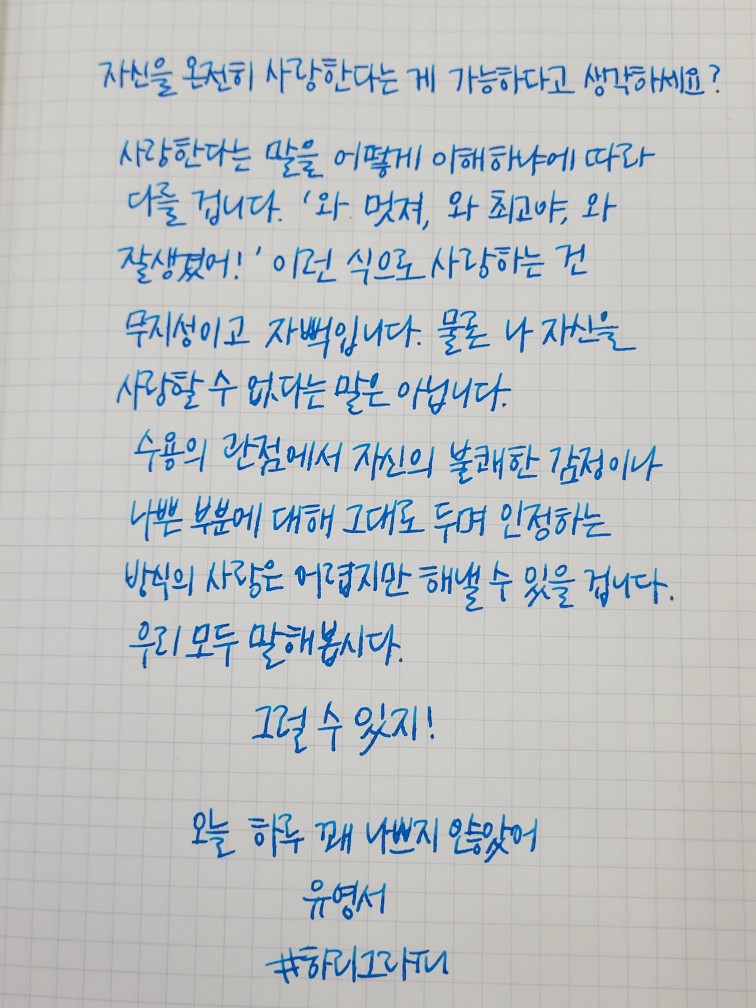 자신을 온전히 사랑한다는 게 가능하다고 생각하세요?
사랑한다는 말을 어떻게 이해하냐에 따라
다를 겁니다. '와 멋져, 와 최고야, 와
잘생겼어!' 이런 식으로 사랑하는 건
무지성이고 자뻑입니다. 물론 나 자신을
사랑할 수 없다는 말은 아닙니다.
수용의 관점에서 자신의 불쾌한 감정이나
나쁜 부분에 대해 그대로 두며 인정하는
방식의 사랑은 어렵지만 해낼 수 있을 겁니다.
우리 모두 말해봅시다.
그럴 수 있지!
오늘 하루 꽤 나쁘지 않았어
유영서
#하리그라피